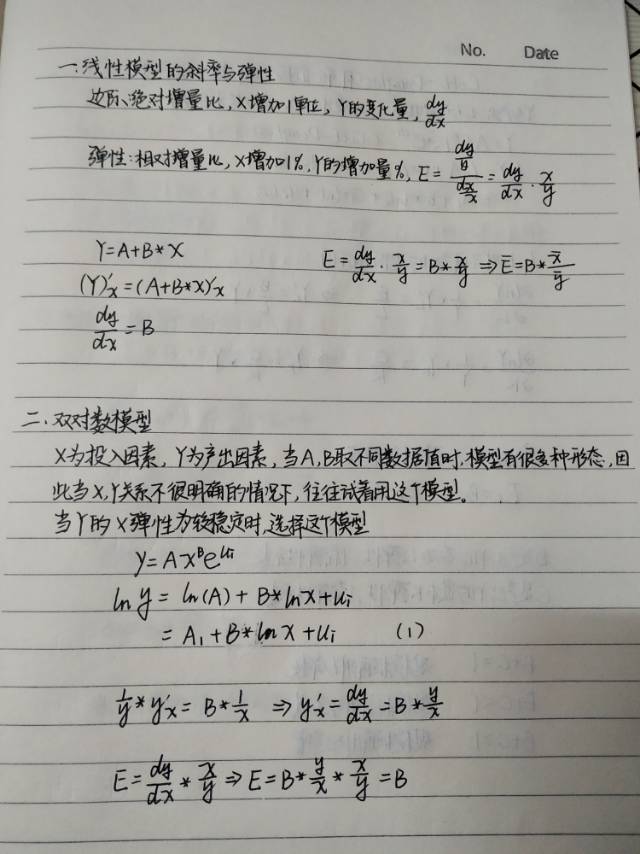 No. Date
一、线性模型的斜率与弹性
边际、绝对增量比，X增加1单位，Y的变化量，dy/dx
弹性：相对增量比，X增加1%，Y的增加量%，E = (dy/y)/(dx/x) = dy/dx · x/y
Y=A+B*X
E = dy/dx · x/y = B * x/y ⇒ Ē = B * x̄/ȳ
(Y)'x = (A+B*X)'x
dy/dx = B
二、双对数模型
X为投入因素，Y为产出因素，当A,B取不同数据值时，模型有很多种形态，因
此当X,Y关系不很明确的情况下，往往试着用这个模型。
当Y的X弹性为较稳定时，选择这个模型
Y = A X^B e^ui
ln y = ln(A) + B*lnx + ui
= A₁ + B*ln x + ui (1)
1/y * y'x = B * 1/x ⇒ y'x = dy/dx = B * y/x
E = dy/dx * x/y ⇒ E = B * y/x * x/y = B